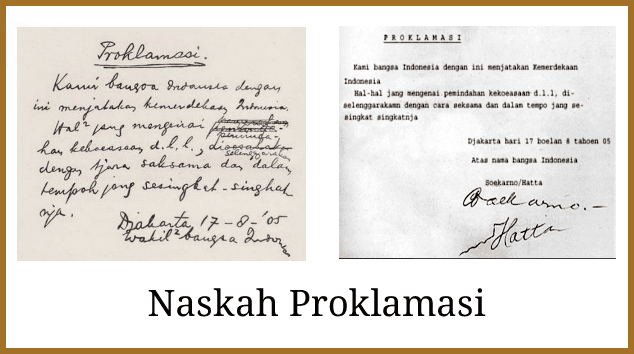 Proklamasi.
Kami bangsa Indonesia dengan
ini menjatakan kemerdekaan Indonesia.
Hal² jang mengenai
peminda-
han kekoeasaan d.l.l.,
diselenggarakan
dengan tjara saksama dan dalam
tempoh jang sesingkat-singkat
nja.
Djakarta, 17-8-'05
Wakil² bangsa Indonesia
PROKLAMASI
Kami bangsa Indonesia dengan ini menjatakan Kemerdekaan
Indonesia
Hal-hal jang mengenai pemindahan kekoeasaan d.l.l, di-
selenggarakamn dengan cara seksama dan dalam tempo jang se-
singkat singkatnja
Djakarta hari 17 boelan 8 tahoen 05
Atas nama bangsa Indonesia
Soekarno/Hatta
Soekarno.-
Hatta
Naskah Proklamasi